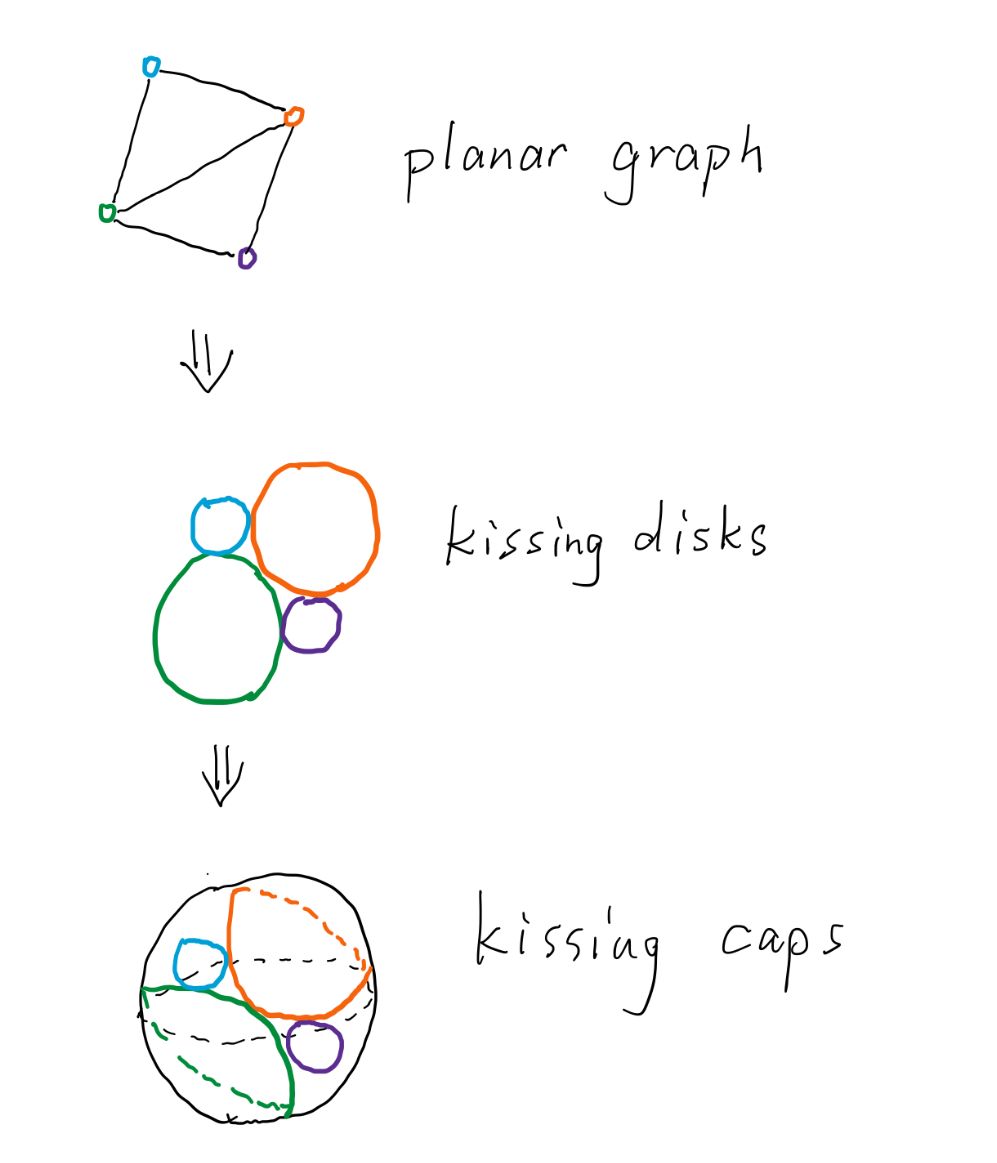 planar graph
kissing disks
kissing caps